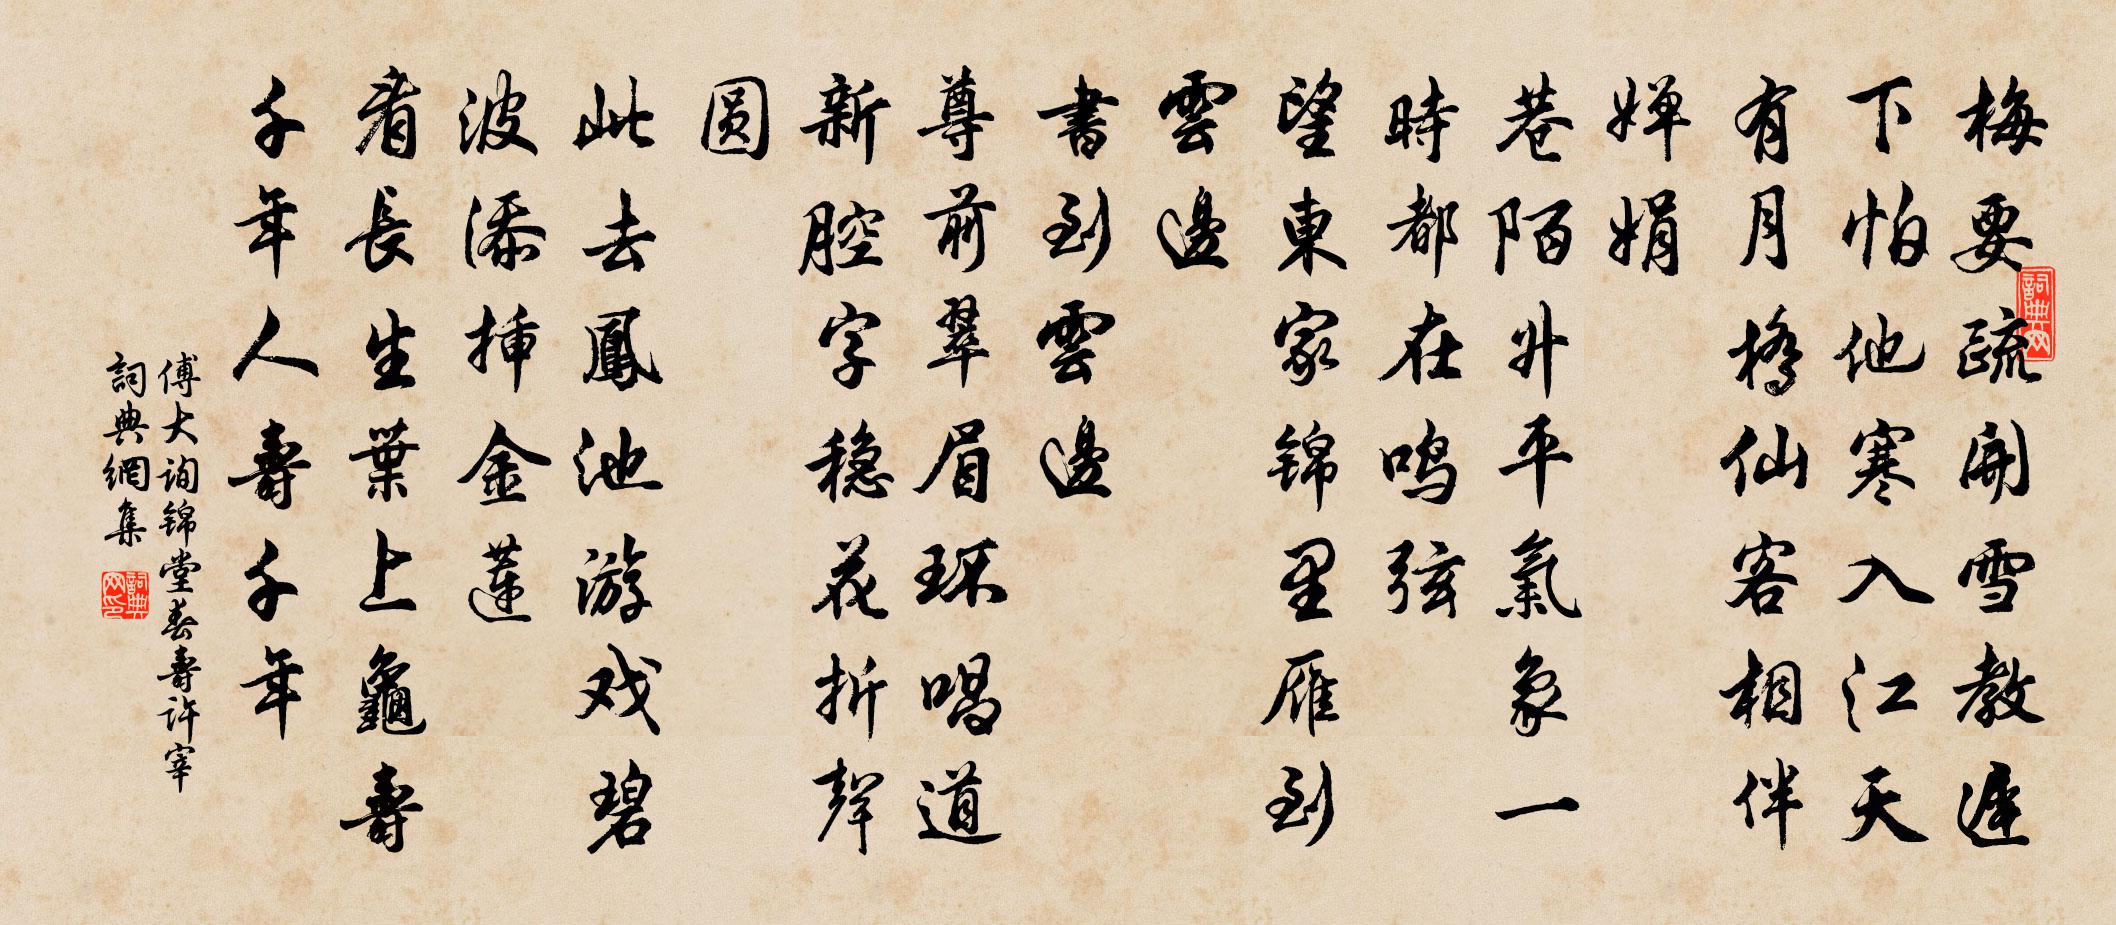 梅要疏開雪教遲
下怕他寒入江天
有月橋仙客相伴
婵娟
巷陌升平氣象一
時都在鸣弦
望東家锦里雁到
雲邊
書到雲邊
尊前翠眉环唱道
新腔字稳花折聲
圆
此去鳳池游戏碧
波添插金蓮
看長生葉上龜壽
千年人壽千年
傅大询锦堂春壽许宰
詞典網集
詞典网
詞典网印